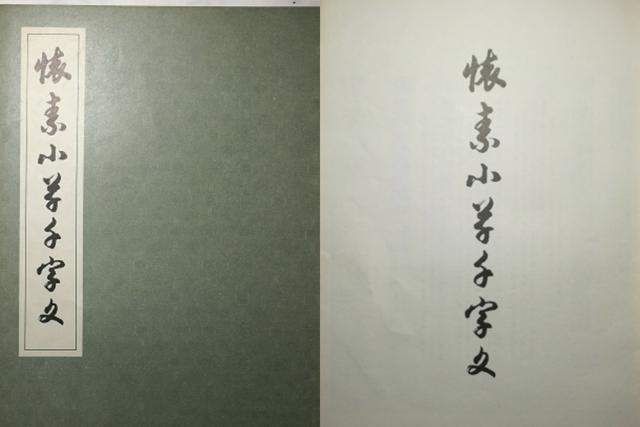 懐素小草千字文
懐素小草千字文